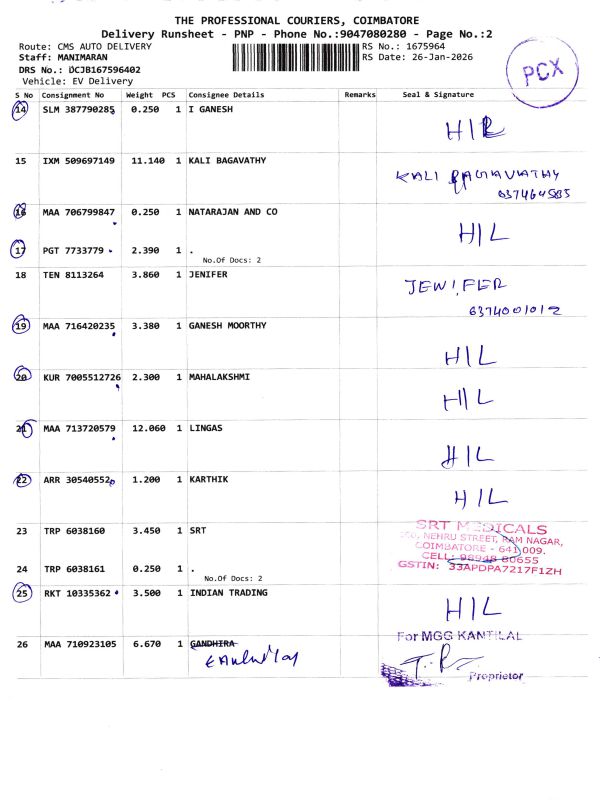 THE PROFESSIONAL COURIERS, COIMBATORE
Delivery Runsheet - PNP - Phone No.:9047080280 - Page No.:2
Route: CMS AUTO DELIVERY
RS No.: 1675964
Staff: MANIMARAN
RS Date: 26-Jan-2026
DRS No.: DCJB167596402
Vehicle: EV Delivery
PCX
S No Consignment No Weight PCS Consignee Details Remarks Seal & Signature
14 SLM 387790285 0.250 1 I GANESH
15 IXM 509697149 11.140 1 KALI BAGAVATHY KALI BAGAVATHY
16 MAA 706799847 0.250 1 NATARAJAN AND CO H/L
17 PGT 7733779 2.390 1 .
No.Of Docs: 2
18 TEN 8113264 3.860 1 JENIFER JENIFER
6374001012
19 MAA 716420235 3.380 1 GANESH MOORTHY H/L
20 KUR 7005512726 2.300 1 MAHALAKSHMI H/L
21 MAA 713720579 12.060 1 LINGAS H/L
22 ARR 30540552 1.200 1 KARTHIK H/L
23 TRP 6038160 3.450 1 SRT
SRT MEDICALS
NEHRU STREET, RAM NAGAR,
COIMBATORE - 641 009.
CELL: 98948 80655
GSTIN: 33APDPA7217F1ZH
24 TRP 6038161 0.250 1 .
No.Of Docs: 2
25 RKT 10335362 3.500 1 INDIAN TRADING H/L
26 MAA 710923105 6.670 1 GANDHIRA
For MGG KANTILAL
Proprietor